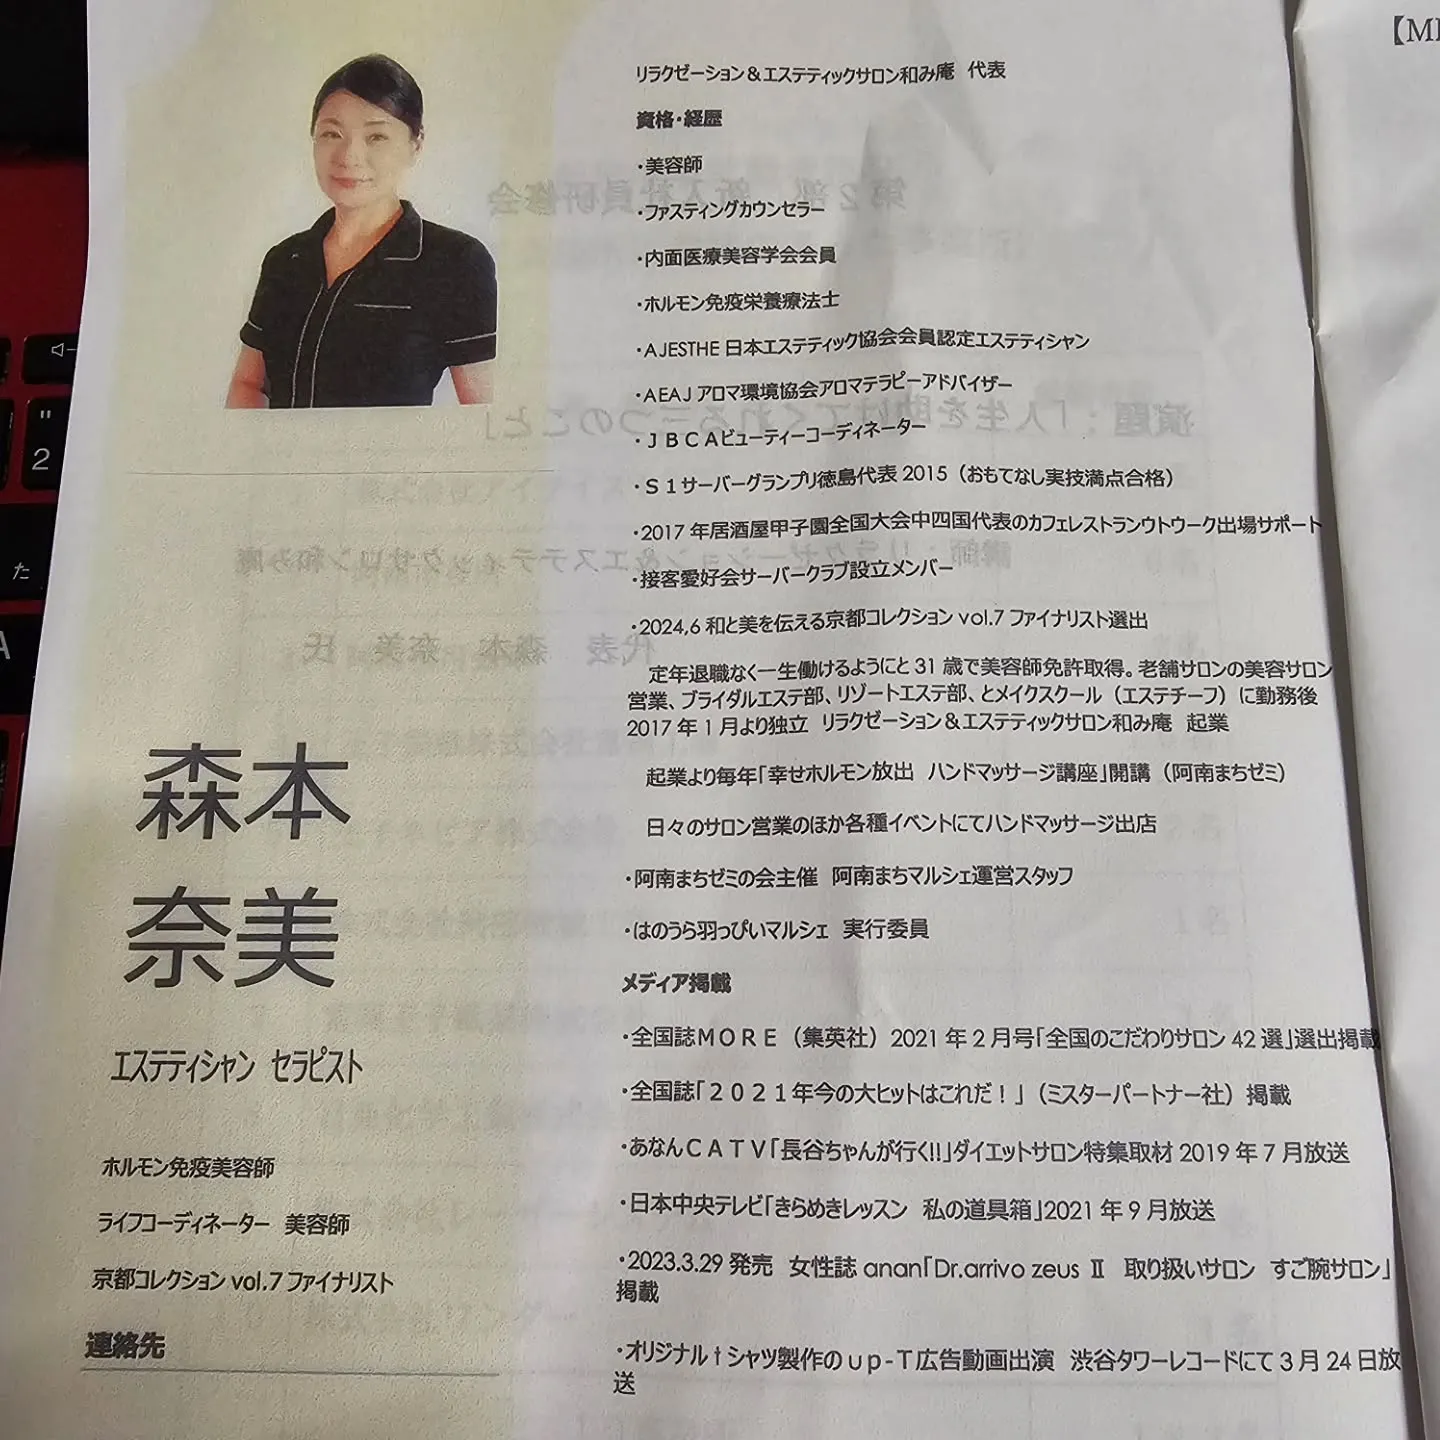 【M
リラクゼーション＆エステティックサロン和み庵　代表
資格・経歴
・美容師
・ファスティングカウンセラー
・内面医療美容学会会員
・ホルモン免疫栄養療法士
・AJESTHE 日本エステティック協会会員認定エステティシャン
・AEAJ アロマ環境協会アロマテラピーアドバイザー
・ＪＢＣＡビューティーコーディネーター
・Ｓ１サーバーグランプリ徳島代表 2015（おもてなし実技満点合格）
・2017 年居酒屋甲子園全国大会中四国代表のカフェレストランウトウーク出場サポート
・接客愛好会サーバークラブ設立メンバー
・2024,6 和と美を伝える京都コレクション vol.7 ファイナリスト選出
定年退職なく一生働けるようにと 31 歳で美容師免許取得。老舗サロンの美容サロン
営業、ブライダルエステ部、リゾートエステ部、とメイクスクール（エステチーフ）に勤務後
2017 年 1 月より独立　リラクゼーション＆エステティックサロン和み庵　起業
起業より毎年「幸せホルモン放出　ハンドマッサージ講座」開講（阿南まちゼミ）
日々のサロン営業のほか各種イベントにてハンドマッサージ出店
・阿南まちゼミの会主催　阿南まちマルシェ運営スタッフ
・はのうら羽っぴいマルシェ　実行委員
メディア掲載
・全国誌ＭＯＲＥ（集英社）2021 年 2 月号「全国のこだわりサロン 42 選」選出掲載
・全国誌「２０２１年今の大ヒットはこれだ！」（ミスターパートナー社）掲載
・あなんＣＡＴＶ「長谷ちゃんが行く!!」ダイエットサロン特集取材 2019 年 7 月放送
・日本中央テレビ「きらめきレッスン　私の道具箱」2021 年 9 月放送
・2023.3.29 発売　女性誌 anan「Dr.arrivo zeus Ⅱ　取り扱いサロン　すご腕サロン」
掲載
・オリジナルｔシャツ製作のｕｐ-Ｔ広告動画出演　渋谷タワーレコードにて 3 月 24 日放
送
森本
奈美
エステティシャン　セラピスト
ホルモン免疫美容師
ライフコーディネーター　美容師
京都コレクション vol.7 ファイナリスト
連絡先
"
2
た
A